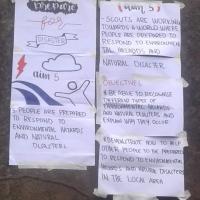 PREPARE
FOR
DISASTER
aim 5
5. PEOPLE ARE PREPARED
TO RESPOND TO
ENVIRONMENTAL HAZARDS
AND NATURAL
DISASTERS.
(aim 5)
- SCOUTS ARE WORKING
TOWARDS A WORLD WHERE
PEOPLE ARE PREPARED TO
RESPOND TO ENVIRONMEN
TAL HAZARDS AND
NATURAL DISASTER
OBJECTIVES
* BE ABLE TO RECOGNISE
DIFFERENT TYPES OF
ENVIRONMENTAL HAZARDS
AND NATURAL DISASTERS, AND
EXPLAIN WHY THEY OCCUR
* DEMONSTRATE HOW TO HELP
OTHER PEOPLE TO BE PREPARED
TO RESPOND TO ENVIRONMENTAL
HAZARDS AND NATURAL DISASTERS
IN THE LOCAL AREA